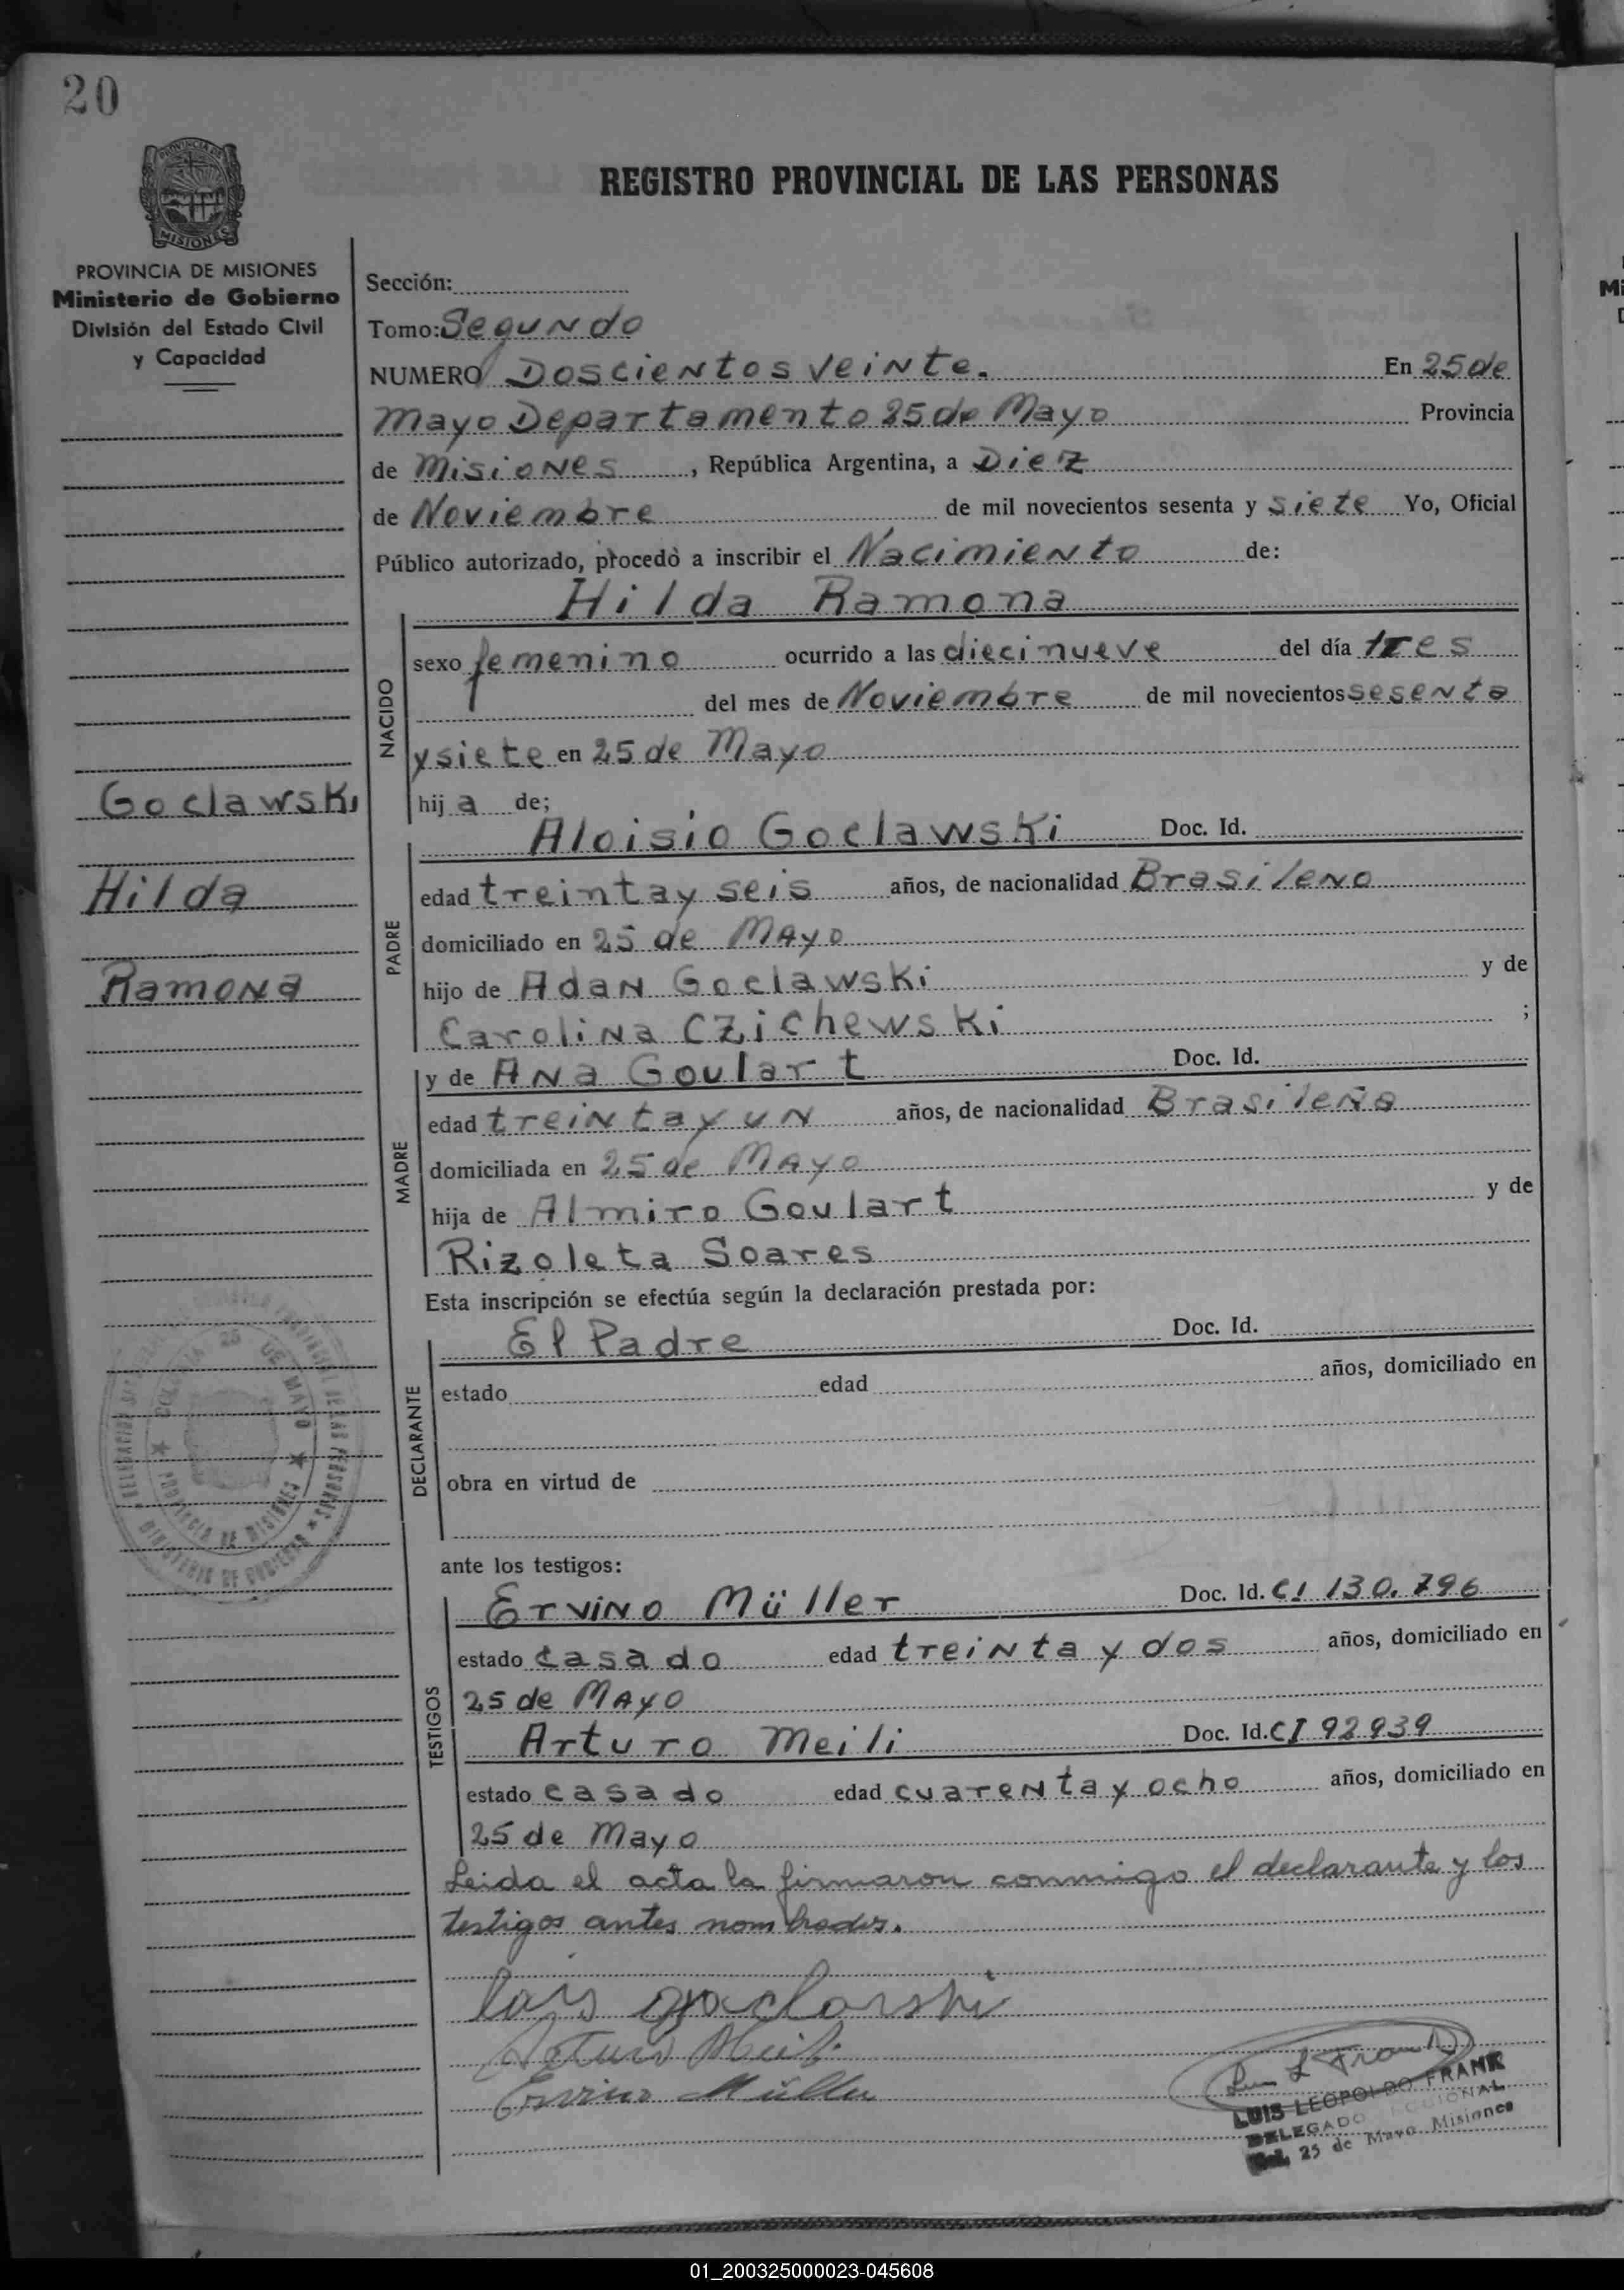 20
PROVINCIA DE
MISIONES
PROVINCIA DE MISIONES
Ministerio de Gobierno
División del Estado Civil
y Capacidad
Goclawski
Hilda
Ramona
REGISTRO PROVINCIAL DE LAS PERSONAS
Sección:
Tomo: Segundo
NUMERO Doscientos veinte. En 25 de
Mayo Departamento 25 de Mayo Provincia
de Misiones, República Argentina, a Diez
de Noviembre de mil novecientos sesenta y siete Yo, Oficial
Público autorizado, procedo a inscribir el Nacimiento de:
Hilda Ramona
NACIDO
sexo femenino ocurrido a las diecinueve del día tres
del mes de Noviembre de mil novecientos sesenta
y siete en 25 de Mayo
hija de;
PADRE
Aloisio Goclawski Doc. Id.
edad treinta y seis años, de nacionalidad Brasileno
domiciliado en 25 de Mayo
hijo de Adan Goclawski y de
Carolina Czichewski ;
MADRE
y de Ana Goulart Doc. Id.
edad treinta y un años, de nacionalidad Brasileña
domiciliada en 25 de Mayo
hija de Almiro Goulart y de
Rizoleta Soares
Esta inscripción se efectúa según la declaración prestada por:
DECLARANTE
El Padre Doc. Id.
estado edad años, domiciliado en
obra en virtud de
ante los testigos:
TESTIGOS
Ervino Müller Doc. Id. CI 130.796
estado casado edad treinta y dos años, domiciliado en
25 de Mayo
Arturo Meili Doc. Id. CI 92939
estado casado edad cuarenta y ocho años, domiciliado en
25 de Mayo
Leida el acta la firmaron conmigo el declarante y los
testigos antes nombrados.
Arturo Meili
Ervino Müller
LUIS LEOPOLDO FRANK
DELEGADO
Col. 25 de Mayo Misiones
25 DE MAYO
PROVINCIA DE MISIONES
MINISTERIO DE GOBIERNO
01_200325000023-045608